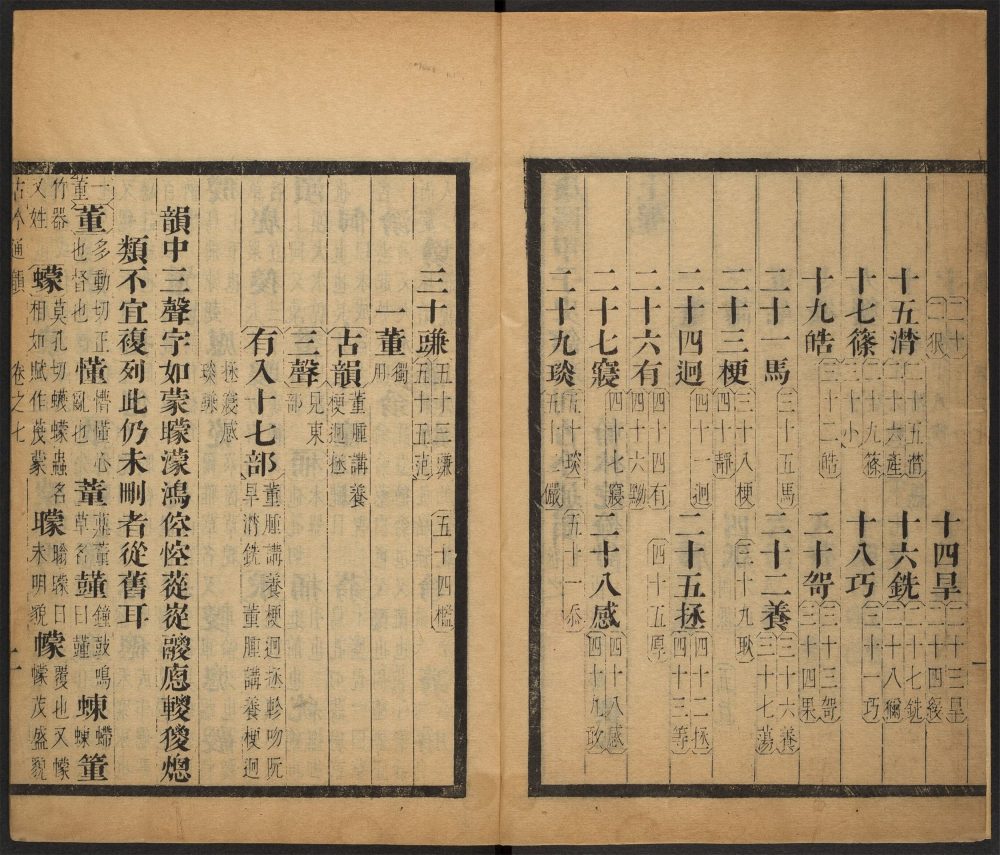 二十一很 十四旱 二十三旱 二十四緩
十五潸 二十五潸 二十六產 十六銑 二十七銑 二十八獮
十七篠 二十九篠 三十小 十八巧 三十一巧
十九皓 三十二皓 二十哿 三十三哿 三十四果
二十一馬 三十五馬 二十二養 三十六養 三十七蕩
二十三梗 三十八梗 三十九耿 四十靜
二十四迥 四十一迥 二十五拯 四十二拯 四十三等
二十六有 四十四有 四十五厚 四十六黝
二十七寑 四十七寑 二十八感 四十八感 四十九敢
二十九琰 五十琰 五十一忝 五十二儼
三十豏 五十三豏 五十四檻 五十五范
一董 獨用
古韻 董腫講養梗迥拯
三聲 見東部
有入十七部 董腫講養梗迥拯軫吻阮旱潸銑 董腫講養梗迥拯寑感琰豏
韻中三聲字如蒙矇濛鴻倥悾蓯從鬷
類不宜複列此仍未刪者從舊耳
一董 董 多動切正也督也 懂 懵懂心亂也 蕫 草名 鼕 鐘鼓鳴曰 蝀 螮蝀 箽
竹器又姓 蠓 莫孔切蠛蠓蟲名相如賦作茂蒙 矇 未明貌 幪 覆也又幪幪茂盛貌
古今通韻 卷之七 二